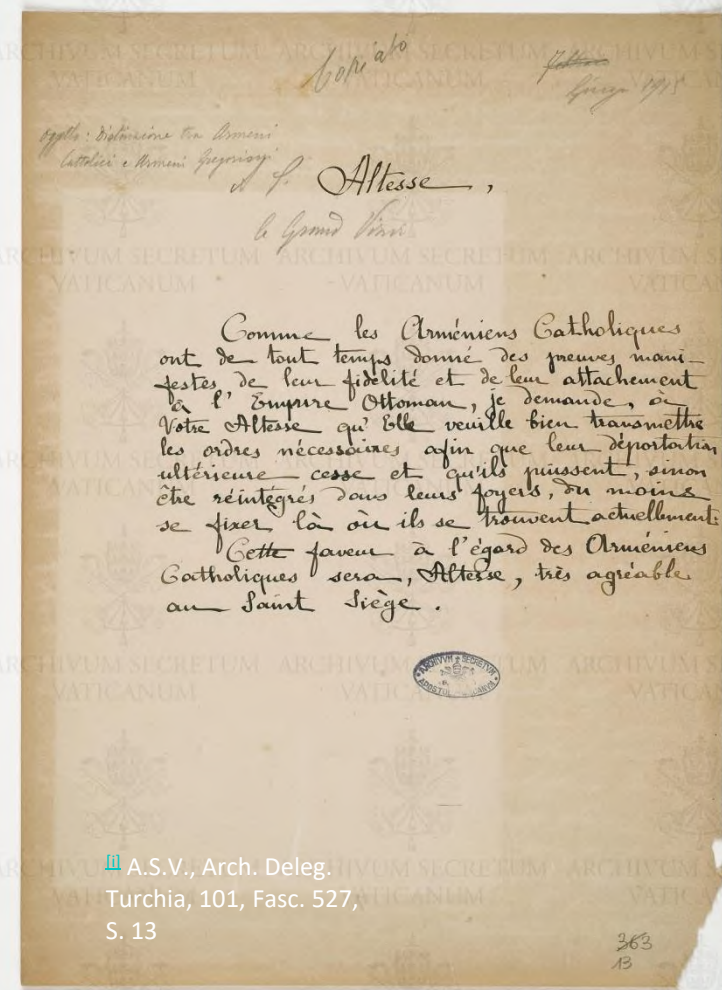 Copiato
Giugno 1915
Oggetto: Distinzione tra Armeni
Cattolici e Armeni Gregoriani
A S. Altesse,
le Grand Vizir
Comme les Arméniens Catholiques
ont de tout temps donné des preuves mani-
festes de leur fidélité et de leur attachement
à l'Empire Ottoman, je demande, à
Votre Altesse qu'Elle veuille bien transmettre
les ordres nécessaires afin que leur déportation
ultérieure cesse et qu'ils puissent, sinon
être réintégrés dans leurs foyers, du moins
se fixer là où ils se trouvent actuellement.
Cette faveur à l'égard des Arméniens
Catholiques sera, Altesse, très agréable
au Saint Siège.
ARCHIVVM SECRETVM
[i] A.S.V., Arch. Deleg.
Turchia, 101, Fasc. 527,
S. 13
363
13
ARCHIVUM SECRETUM
VATICANUM